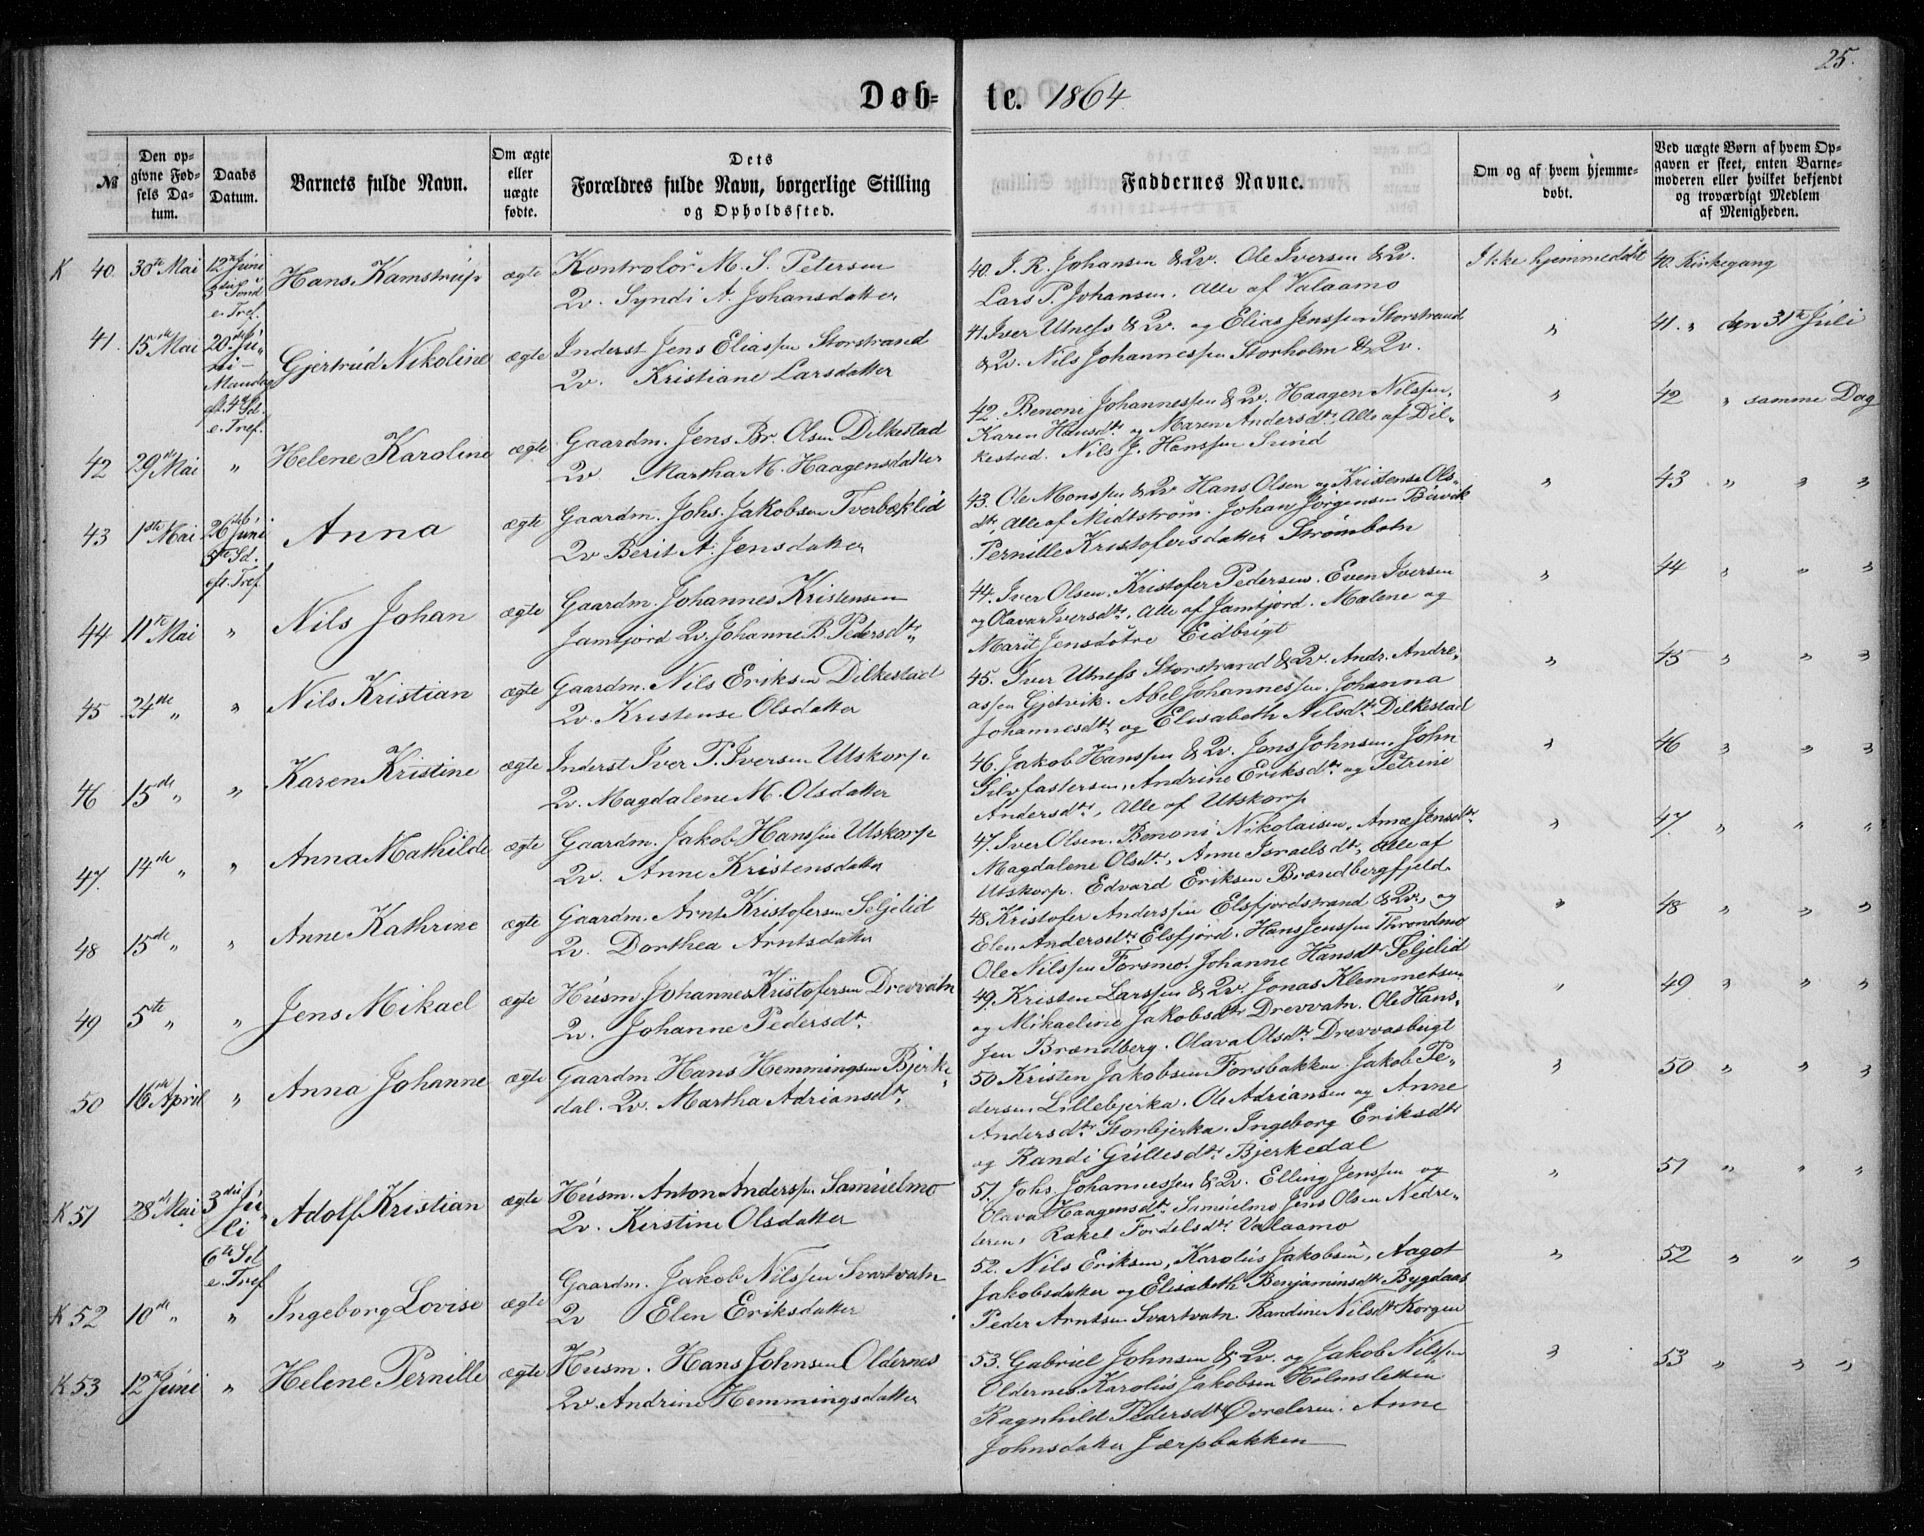 25.
Døb-
te. 1864
№
Den op-
givne Fød-
sels Da-
tum.
Daabs
Datum.
Barnets fulde Navn.
Om ægte
eller
uægte
fødte.
Dets
Forældres fulde Navn, borgerlige Stilling
og Opholdssted.
Faddernes Navne.
Om og af hvem hjemme-
døbt.
Ved uægte Børn af hvem Op-
gaven er skeet, enten Barne-
moderen eller hvilket bekjendt
og troværdigt Medlem
af Menigheden.
K 40. 30te Mai
12te Juni
3 Sønd
e. Tref.
Hans Kamstrup
ægte
Kontrolør M. S. Petersen
Qv. Syndi A. Johansdatter
40. I. R. Johansen & Qv. Ole Iversen & Qv.
Lars P. Johansen. Alle af Valaamo
Ikke hjemmedøbt
40. Kirkegang
41. 15de Mai
20de Ju-
ni-
Mandag
eft. 4de Sd.
e. Tref.
Gjertrud Nikoline
ægte
Inderst Jens Eliassen Storstrand
Qv. Kristiane Larsdatter
41. Iver Utness & Qv. og Elias Jenssen Storstrand
& Qv. Nils Johannessen Storholm & Qv.
"
41. " den 31te Juli
42 29de Mai "
Helene Karoline
ægte
Gaardm. Jens Br. Olsen Dilkestad
Qv Martha M. Haagensdatter
42. Benoni Johannessen & Qv. Haagen Nilssen,
Karen Hansdtr og Maren Andersdtr Alle af Dil-
kestad. Nils J. Hanssen Sund
"
42 " samme Dag
43 1ste Mai
26de Juni
5te Sd.
eft. Tref.
Anna
ægte
Gaardm. Johs. Jakobsen Tverbæklid
Qv Berit A. Jensdatter
43. Ole Monssen & Qv Hans Olsen og Kristense Ols-
dtr, Alle af Midtstrøm. Johan Jørgensen Bisvik
Pernille Kristofersdatter Strømbotn
"
43 " " "
44 11te Mai "
Nils Johan
ægte
Gaardm. Johannes Kristensen
Jamtjord Qv. Johanne B. Pedersdtr
44. Iver Olsen, Kristofer Pedersen, Even Iversen
og Olava Iversdtr, Alle af Jamtjord. Malene og
Marit Jensdøtre Eidbrigt
"
44 " " "
45 24de " "
Nils Kristian
ægte
Gaardm. Nils Eriksen Dilkestad
Qv. Kristense Olsdatter
45. Iver Utness Storstrand & Qv. Andr. Andre-
assen Gjetvik. Abel Johannessen. Johanna
Johannesdtr og Elisabeth Nilsdtr Dilkestad
"
45 " " "
46 15de " "
Karen Kristine
ægte
Inderst Iver P. Iversen Utskorp
Qv. Magdalene M. Olsdatter
46. Jakob Hanssen & Qv. Jens Johnsen, John
Silvfastersen, Andrine Eriksdtr og Petrine
Andersdtr, Alle af Utskorp
"
46 " " "
47. 14de " "
Anna Mathilde
ægte
Gaardm. Jakob Hanssen Utskorp
Qv. Anne Kristensdatter
47. Iver Olsen. Benoni Nikolaisen, Anne Jensdtr
Magdalene Olsdtr, Anne Israelsdtr, Alle af
Utskorp. Edvard Eriksen Brændbergfjeld
"
47. " " "
48 15de " "
Anne Kathrine
ægte
Gaardm. Arnt Kristofersen Seljelid
Qv. Dorthea Arntsdatter
48. Kristofer Anderssen Elsfjordstrand & Qv. og
Elen Andersdtr Elsfjord. Hans Jenssen Throndmo
Ole Nilssen Forsmo. Johanne Hansdtr Seljelid
"
48 " " "
49 5te " "
Jens Mikael
ægte
Husm. Johannes Kristofersen Drevvatn
Qv. Johanne Pedersdtr
49. Kristen Larssen & Qv. Jonas Klemmetsen
og Mikaeline Jakobsdtr Drevvatn. Ole Hans-
sen Brændberg. Olava Olsdtr Drevvasbrigt
"
49 " " "
50 16de April "
Anna Johanne
ægte
Gaardm Hans Hemmingsen Bjerke-
dal. Qv. Martha Adriansdtr.
50 Kristen Jakobsen Forsbakken. Jakob Pe-
dersen Lillebjerka. Ole Adriansen og Anne
Andersdtr Storbjerka. Ingeborg Eriksdtr
og Randi Gullesdtr Bjerkedal
"
50 " " "
K 51 28de Mai
3die Ju-
li
6te Sd
e. Tref
Adolf Kristian
ægte
Husm. Anton Anderssen Samuelmo
Qv. Kirstine Olsdatter
51. Johs Johannessen & Qv. Elling Jenssen og
Olava Haagensdtr Samuelmo Jens Olsen Nedre-
leren, Rakel Fordelsdtr Valaamo
"
51 " " "
K 52 10de " "
Ingeborg Lovise
ægte
Gaardm. Jakob Nilssen Svartvatn
Qv Elen Eriksdatter
52. Nils Eriksen, Karolus Jakobsen, Aagot
Jakobsdatter og Elisabeth Benjaminsdtr Bygdaas
Peder Arntsen Svartvatn. Randine Nilsdtr Korgen
"
52 " " "
K 53 12te Juni "
Helene Pernille
ægte
Husm. Hans Johnsen Oldernes
Qv. Andrine Hemmingsdatter
53. Gabriel Johnsen & Qv. og Jakob Nilssen
Oldernes. Karolus Jakobsen Holmsletten
Ragnhild Pedersdtr Øvreleren. Anne
Johnsdatter Jærpbakken
"
53 " " "